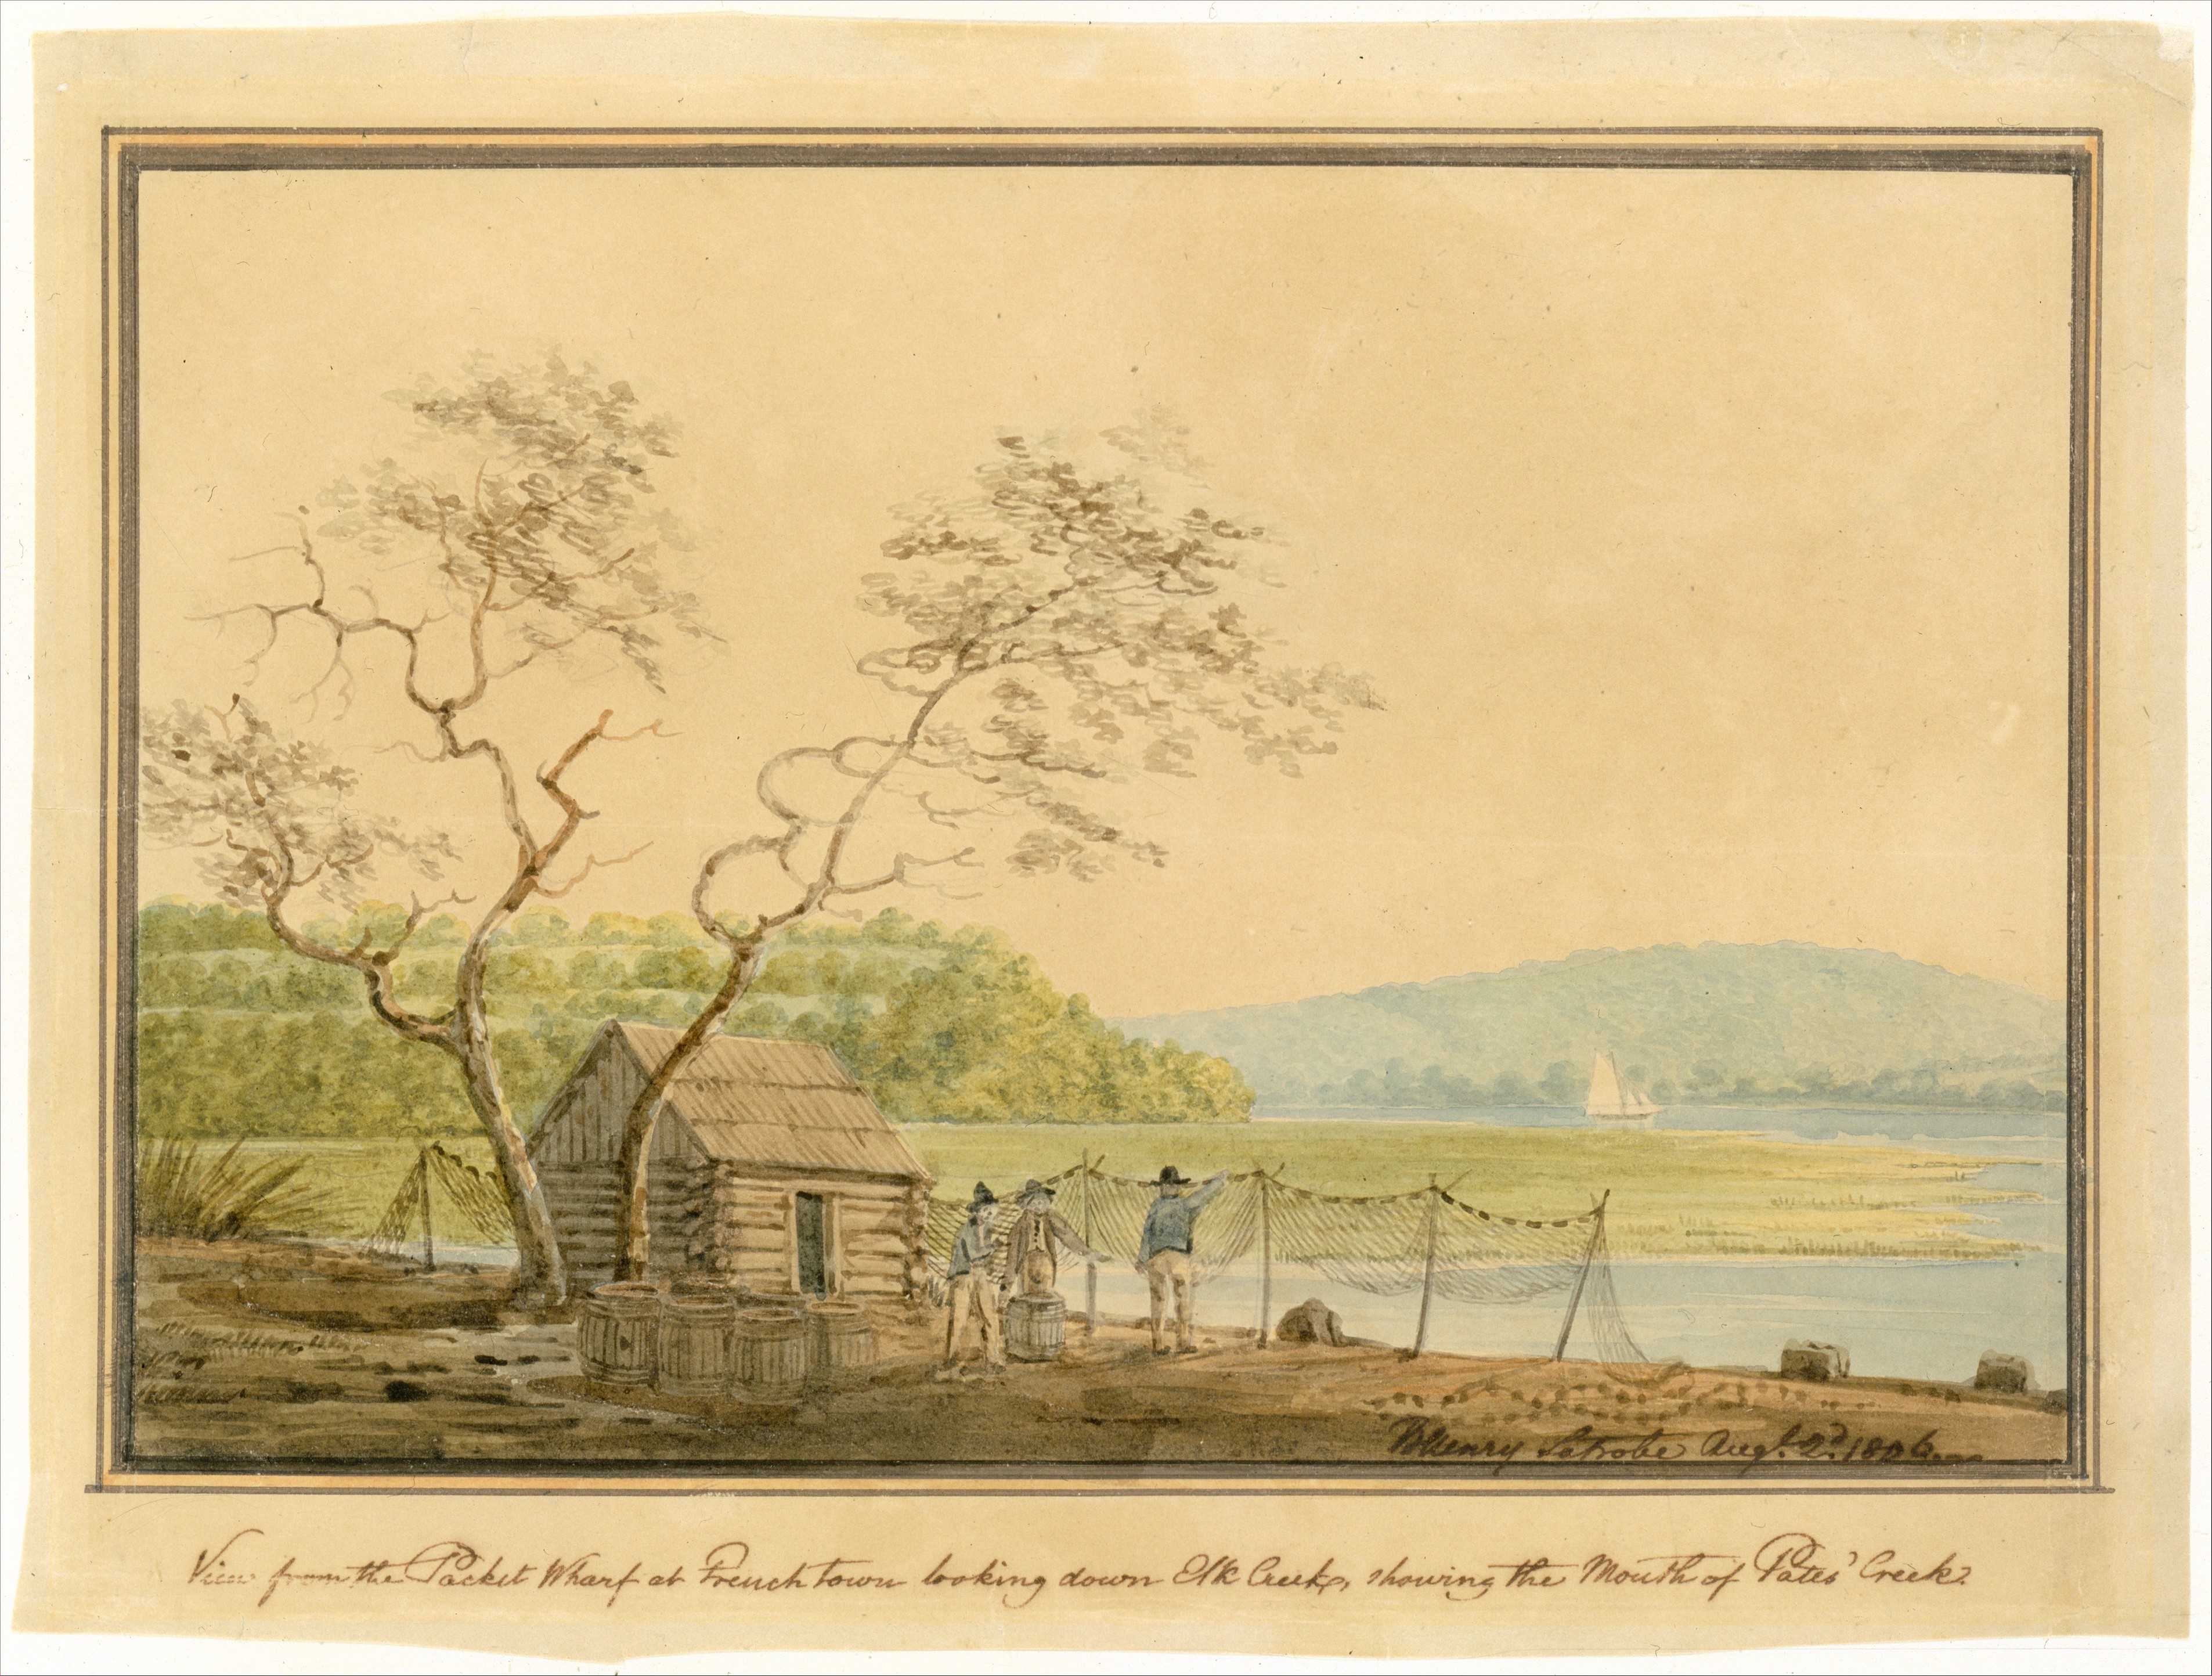 BHenry Latrobe Augt. 2d. 1806.
View from the Packet Wharf at Frenchtown looking down Elk Creek, showing the Mouth of Pates' Creek.